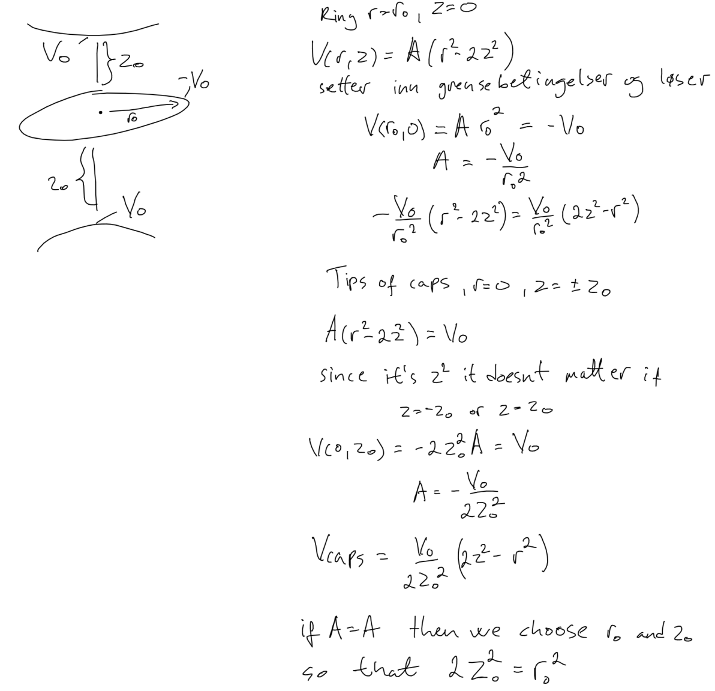 V₀ } z₀
-V₀
r₀
z₀ {
V₀
Ring r=r₀, z=0
V(r,z) = A(r²-2z²)
setter inn grensebetingelser og løser
V(r₀,0) = A r₀² = -V₀
A = -V₀/r₀²
-V₀/r₀² (r²-2z²) = V₀/r₀² (2z²-r²)
Tips of caps, r=0, z=±z₀
A(r²-2z²) = V₀
since it's z² it doesnt matter if
z=-z₀ or z=z₀
V(0,z₀) = -2z₀²A = V₀
A = -V₀/2z₀²
Vcaps = V₀/2z₀² (2z²-r²)
if A=A then we choose r₀ and z₀
so that 2z₀² = r₀²